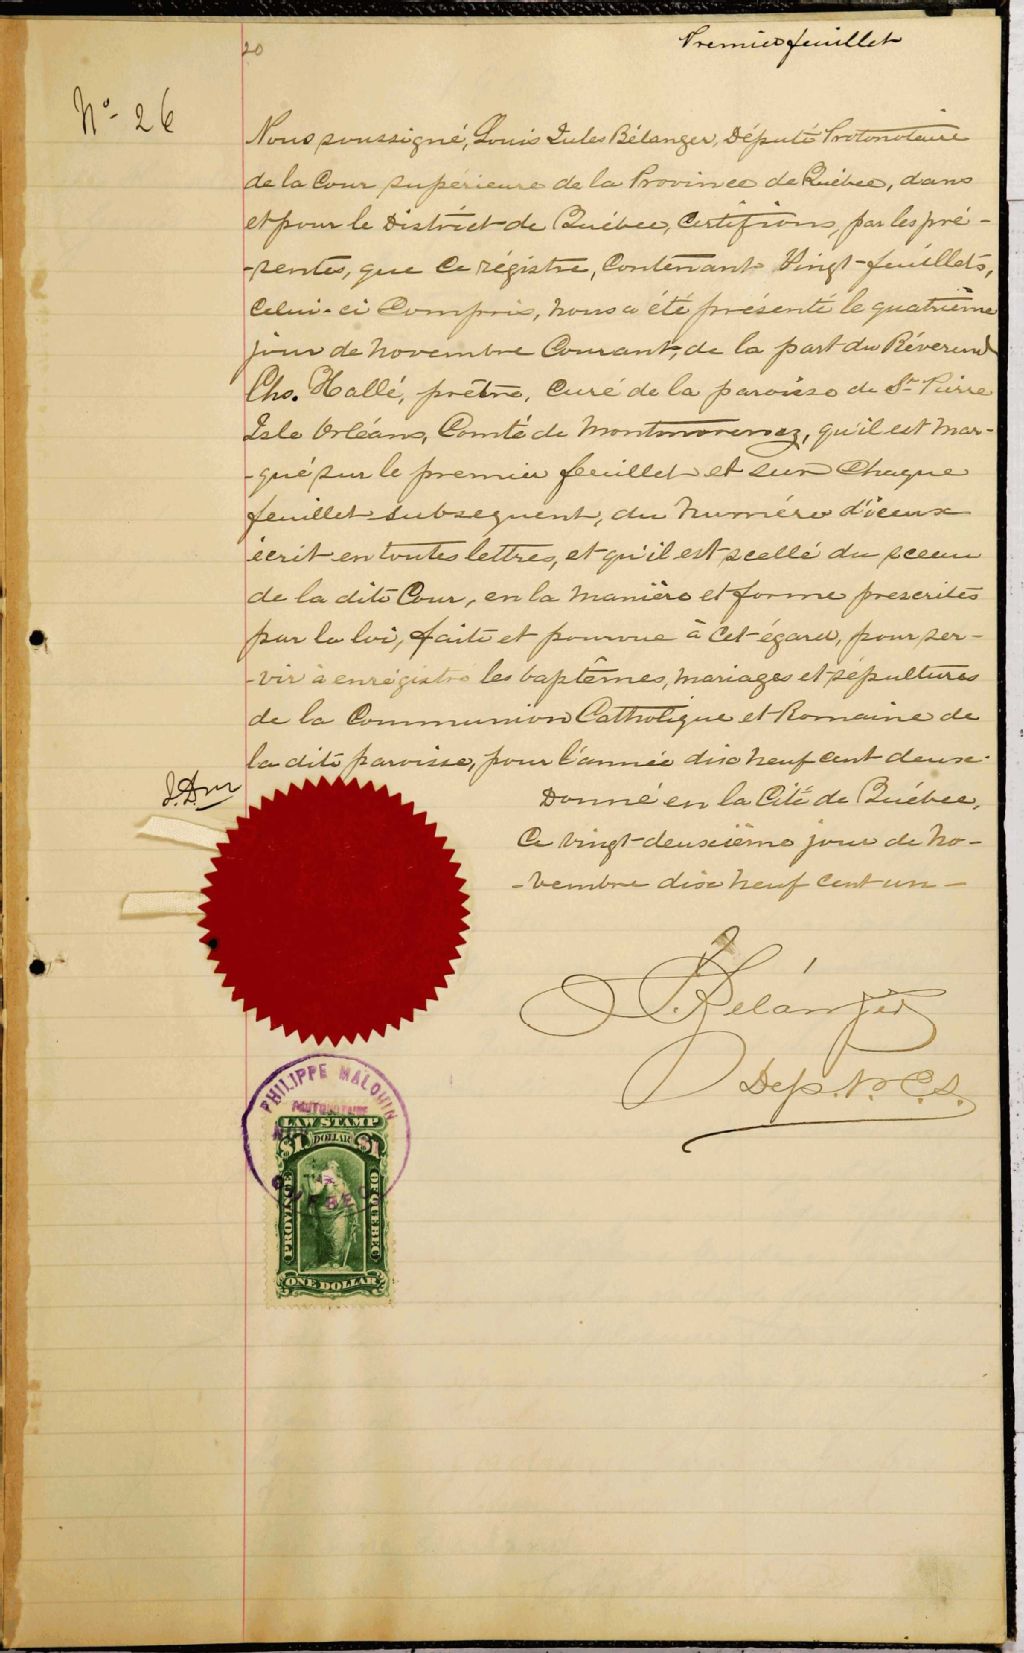 20
Premier feuillet
No- 26
Nous soussigné, Louis Jules Bélanger, Député Protonotaire
de la Cour supérieure de la Province de Québec, dans
et pour le District de Québec, Certifions, par les pré-
-sentes, que ce régistre, contenant Vingt-feuillets,
celui-ci Compris, nous a été présenté le quatrième
jour de novembre Courant, de la part du Révérend
Chs. Hallé, prêtre, Curé de la paroisse de St Pierre
Isle Orléans, Comté de Montmorency, qu'il est mar-
-qué sur le premier feuillet et sur chaque
feuillet subsequent, du numéro d'iceux
écrit en toutes lettres, et qu'il est scellé du sceau
de la dite Cour, en la manière et forme prescrites
par la loi, faite et pourvue à cet égard, pour ser-
-vir à enrégistré les baptêmes, mariages et sépultures
de la Communion Catholique et Romaine de
la dite paroisse, pour l'année dix neuf cent deux.
Donné en la Cité de Québec,
Ce vingt-deuxième jour de no-
-vembre dix neuf cent un -
Bélanger
Dep. P. C. S.
PHILIPPE MALOUIN
PROTONOTAIRE
NOV
QUEBEC
LAW STAMP
$1 DOLLAR $1
PROVINCE OF QUEBEC
ONE DOLLAR